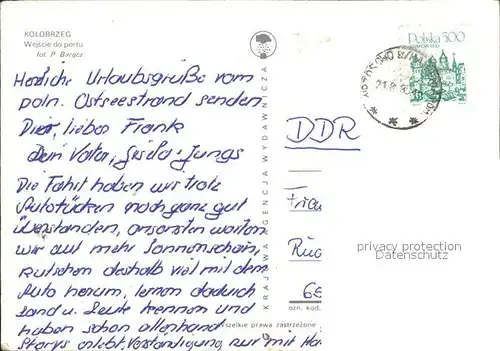 KOŁOBRZEG
Wejście do portu
fot. P. Barącz
KRAJOWA AGENCJA WYDAWNICZA
Polska 500
21.8
Herzliche Urlaubsgrüße vom
poln. Ostseestrand senden
Dir, lieber Frank
Dein Vater, Gisela + Jungs
Die Fahrt haben wir trotz
Autotücken noch ganz gut
überstanden, ansonsten warten
wir auf mehr Sonnenschein,
kutschen deshalb viel mit dem
Auto herum, lernen dadurch
Land u. Leute kennen und
haben schon allerhand
Storys erlebt. Verständigung nur mit
DDR
privacy protection
Daten Schutz
ozn. kod.
wszelkie prawa zastrzeżone